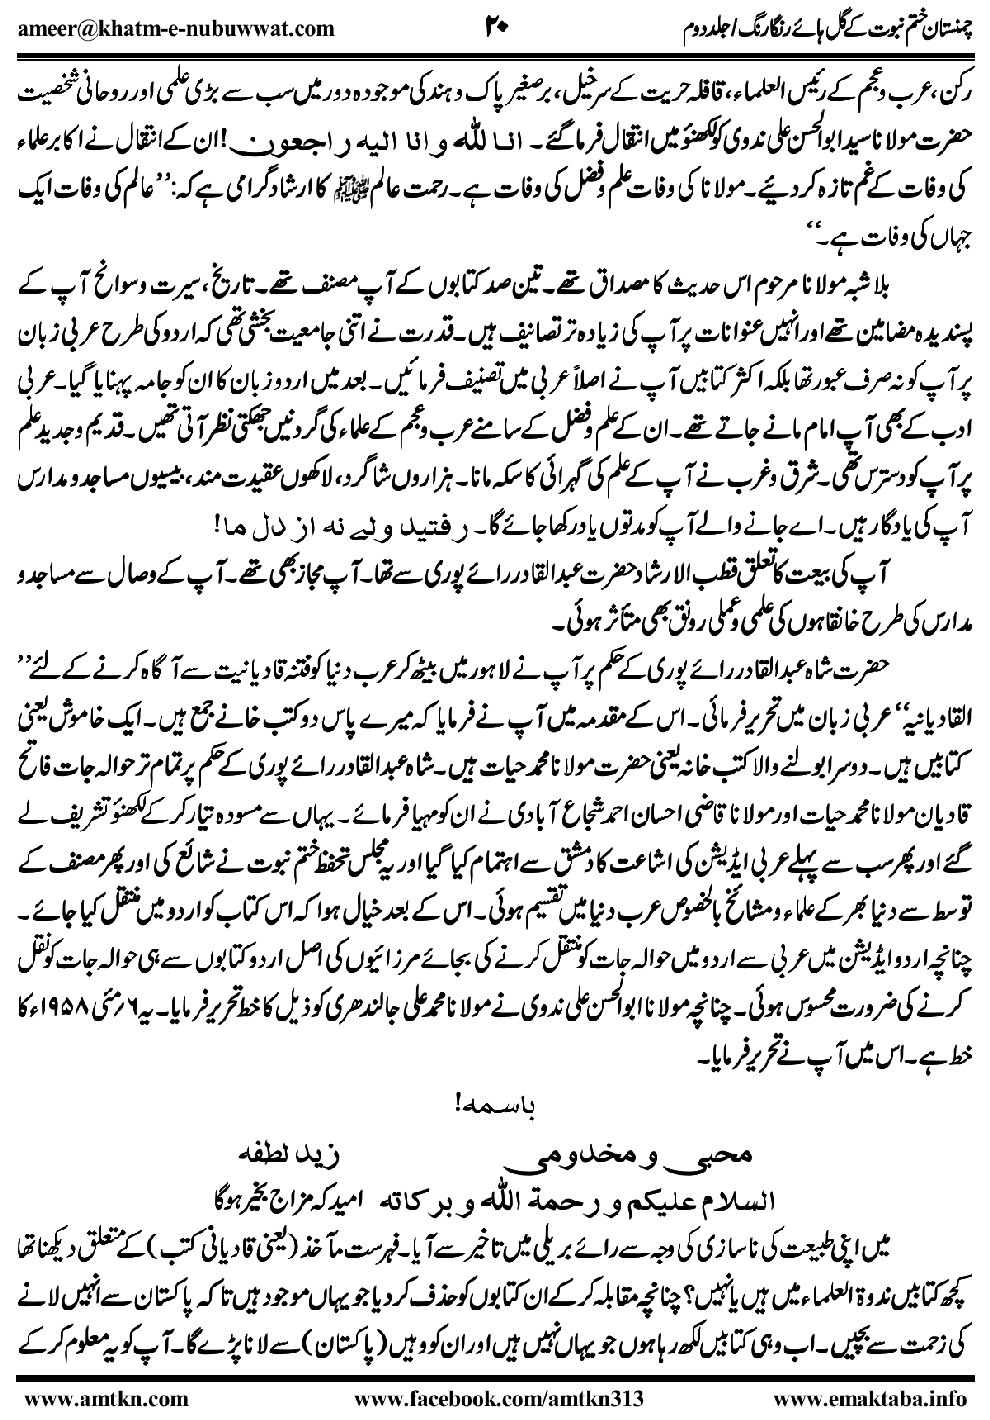 ameer@khatm-e-nubuwwat.com ۲۰ چمنستان ختم نبوت کے گل ہائے رنگا رنگ / جلد دوم
رکن، عرب و عجم کے رئیس العلماء، قافلہ حریت کے سرخیل، برصغیر پاک و ہند کی موجودہ دور میں سب سے بڑی علمی اور روحانی شخصیت
حضرت مولانا سید ابوالحسن علی ندوی کو لکھنؤ میں انتقال فرما گئے۔ انا للہ و انا الیہ راجعون! ان کے انتقال نے اکابر علماء
کی وفات کے غم تازہ کر دئیے۔ مولانا کی وفات علم و فضل کی وفات ہے۔ رحمت عالم ﷺ کا ارشاد گرامی ہے کہ: ’’عالم کی وفات ایک
جہاں کی وفات ہے۔‘‘
بلاشبہ مولانا مرحوم اس حدیث کا مصداق تھے۔ تین صد کتابوں کے آپ مصنف تھے۔ تاریخ، سیرت و سوانح آپ کے
پسندیدہ مضامین تھے اور انہیں عنوانات پر آپ کی زیادہ تر تصانیف ہیں۔ قدرت نے اتنی جامعیت بخشی تھی کہ اردو کی طرح عربی زبان
پر آپ کو نہ صرف عبور تھا بلکہ اکثر کتابیں آپ نے اصلاً عربی میں تصنیف فرمائیں۔ بعد میں اردو زبان کا ان کو جامہ پہنایا گیا۔ عربی
ادب کے بھی آپ امام مانے جاتے تھے۔ ان کے علم و فضل کے سامنے عرب و عجم کے علماء کی گردنیں جھکتی نظر آتی تھیں۔ قدیم و جدید علم
پر آپ کو دسترس تھی۔ شرق و غرب نے آپ کے علم کی گہرائی کا سکہ مانا۔ ہزاروں شاگرد، لاکھوں عقیدت مند، بیسیوں مساجد و مدارس
آپ کی یادگار ہیں۔ اے جانے والے آپ کو مدتوں یاد رکھا جائے گا۔ رفتید ولے نہ از دل ما!
آپ کی بیعت کا تعلق قطب الارشاد حضرت عبدالقادر رائے پوری سے تھا۔ آپ مجاز بھی تھے۔ آپ کے وصال سے مساجد و
مدارس کی طرح خانقاہوں کی علمی و عملی رونق بھی متأثر ہوئی۔
حضرت شاہ عبدالقادر رائے پوری کے حکم پر آپ نے لاہور میں بیٹھ کر عرب دنیا کو فتنہ قادیانیت سے آگاہ کرنے کے لئے ’’
القادیانیہ‘‘ عربی زبان میں تحریر فرمائی۔ اس کے مقدمہ میں آپ نے فرمایا کہ میرے پاس دو کتب خانے جمع ہیں۔ ایک خاموش یعنی
کتابیں ہیں۔ دوسرا بولنے والا کتب خانہ یعنی حضرت مولانا محمد حیات ہیں۔ شاہ عبدالقادر رائے پوری کے حکم پر تمام تر حوالہ جات فاتح
قادیان مولانا محمد حیات اور مولانا قاضی احسان احمد شجاع آبادی نے ان کو مہیا فرمائے۔ یہاں سے مسودہ تیار کر کے لکھنؤ تشریف لے
گئے اور پھر سب سے پہلے عربی ایڈیشن کی اشاعت کا دمشق سے اہتمام کیا گیا اور یہ مجلس تحفظ ختم نبوت نے شائع کی اور پھر مصنف کے
توسط سے دنیا بھر کے علماء و مشائخ بالخصوص عرب دنیا میں تقسیم ہوئی۔ اس کے بعد خیال ہوا کہ اس کتاب کو اردو میں منتقل کیا جائے۔
چنانچہ اردو ایڈیشن میں عربی سے اردو میں حوالہ جات کو منتقل کرنے کی بجائے مرزائیوں کی اصل اردو کتابوں سے ہی حوالہ جات کو نقل
کرنے کی ضرورت محسوس ہوئی۔ چنانچہ مولانا ابوالحسن علی ندوی نے مولانا محمد علی جالندھری کو ذیل کا خط تحریر فرمایا۔ یہ ۶؍مئی ۱۹۵۸ء کا
خط ہے۔ اس میں آپ نے تحریر فرمایا۔
باسمہ!
محبی و مخدومی زید لطفہ
السلام علیکم و رحمۃ اللہ و برکاتہ امید کہ مزاج بخیر ہوگا
میں اپنی طبیعت کی ناسازی کی وجہ سے رائے بریلی میں تاخیر سے آیا۔ فہرست مآخذ (یعنی قادیانی کتب) کے متعلق دیکھنا تھا
کچھ کتابیں ندوۃ العلماء میں ہیں یا نہیں؟ چنانچہ مقابلہ کر کے ان کتابوں کو حذف کر دیا جو یہاں موجود ہیں تا کہ پاکستان سے انہیں لانے
کی زحمت سے بچیں۔ اب وہی کتابیں لکھ رہا ہوں جو یہاں نہیں ہیں اور ان کو وہیں (پاکستان) سے لانا پڑے گا۔ آپ کو یہ معلوم کر کے
www.amtkn.com www.facebook.com/amtkn313 www.emaktaba.info